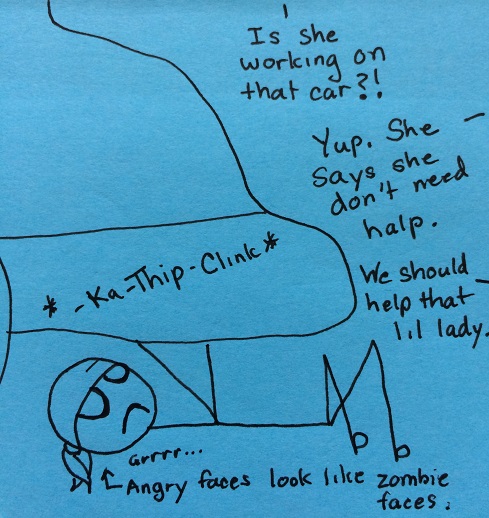 Is she
working on
that car?!
Yup. She
says she
don't need
halp.
We should
help that
lil lady.
*-Ka-Thip-Clink*
Grrrr...
Angry faces look like zombie
faces.